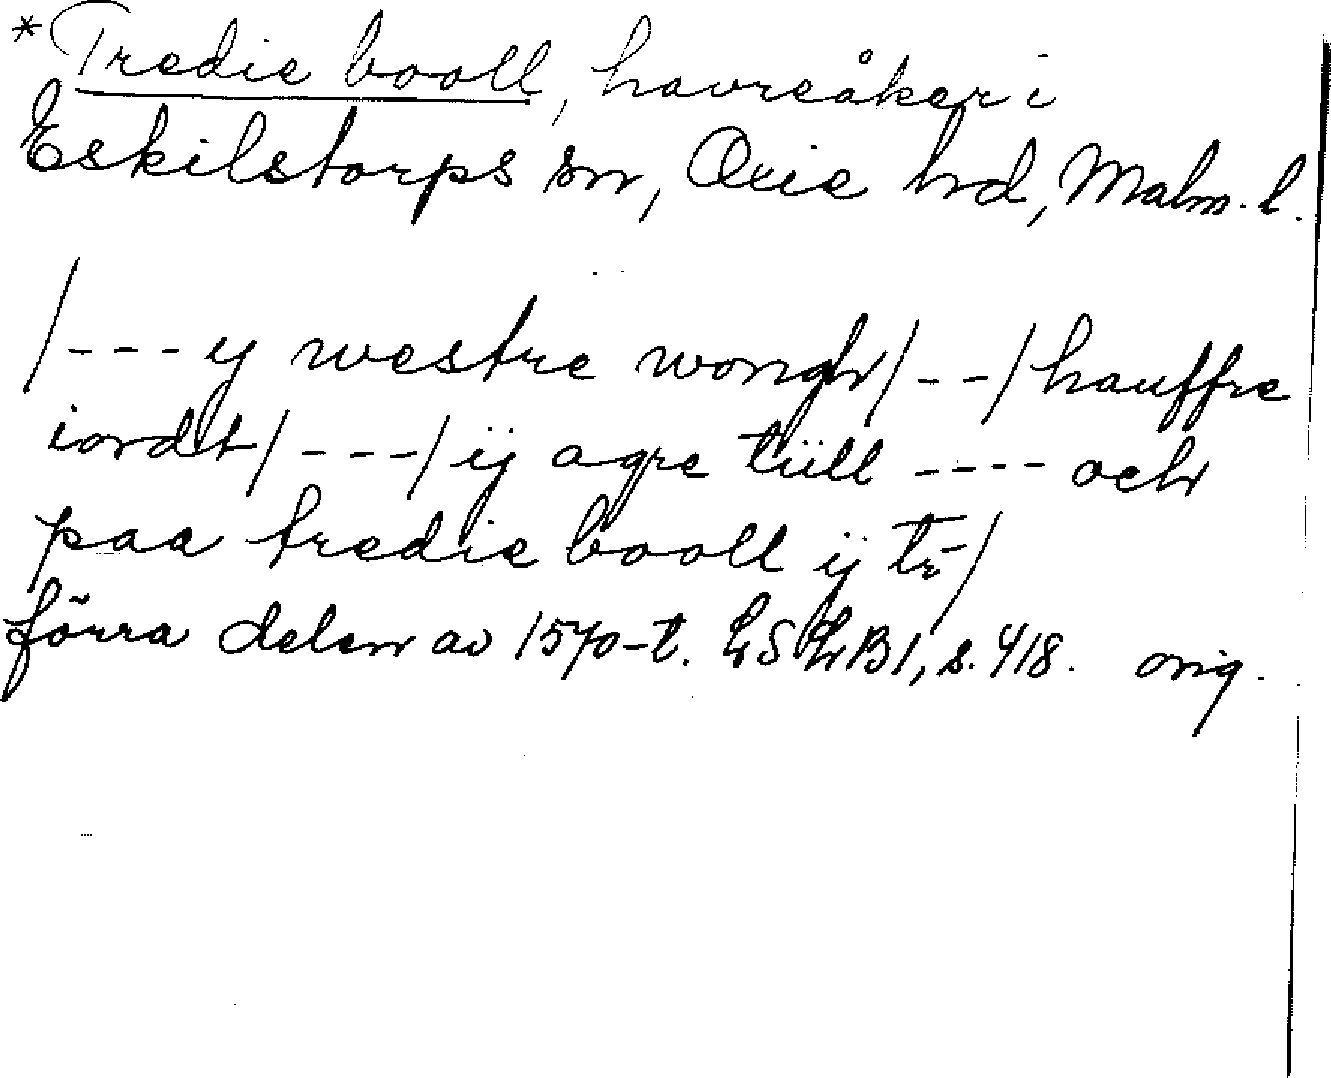 *Tredie booll, havreåker i
Eskilstorps sn, Oxie hd, Malm. l.
/---y westre wongh/--/hauffre
iordt/---/ij agre tüll ---- och
paa tredie booll ij tr-/
förra delen av 1570-t. LSLB1, s. 418. orig.